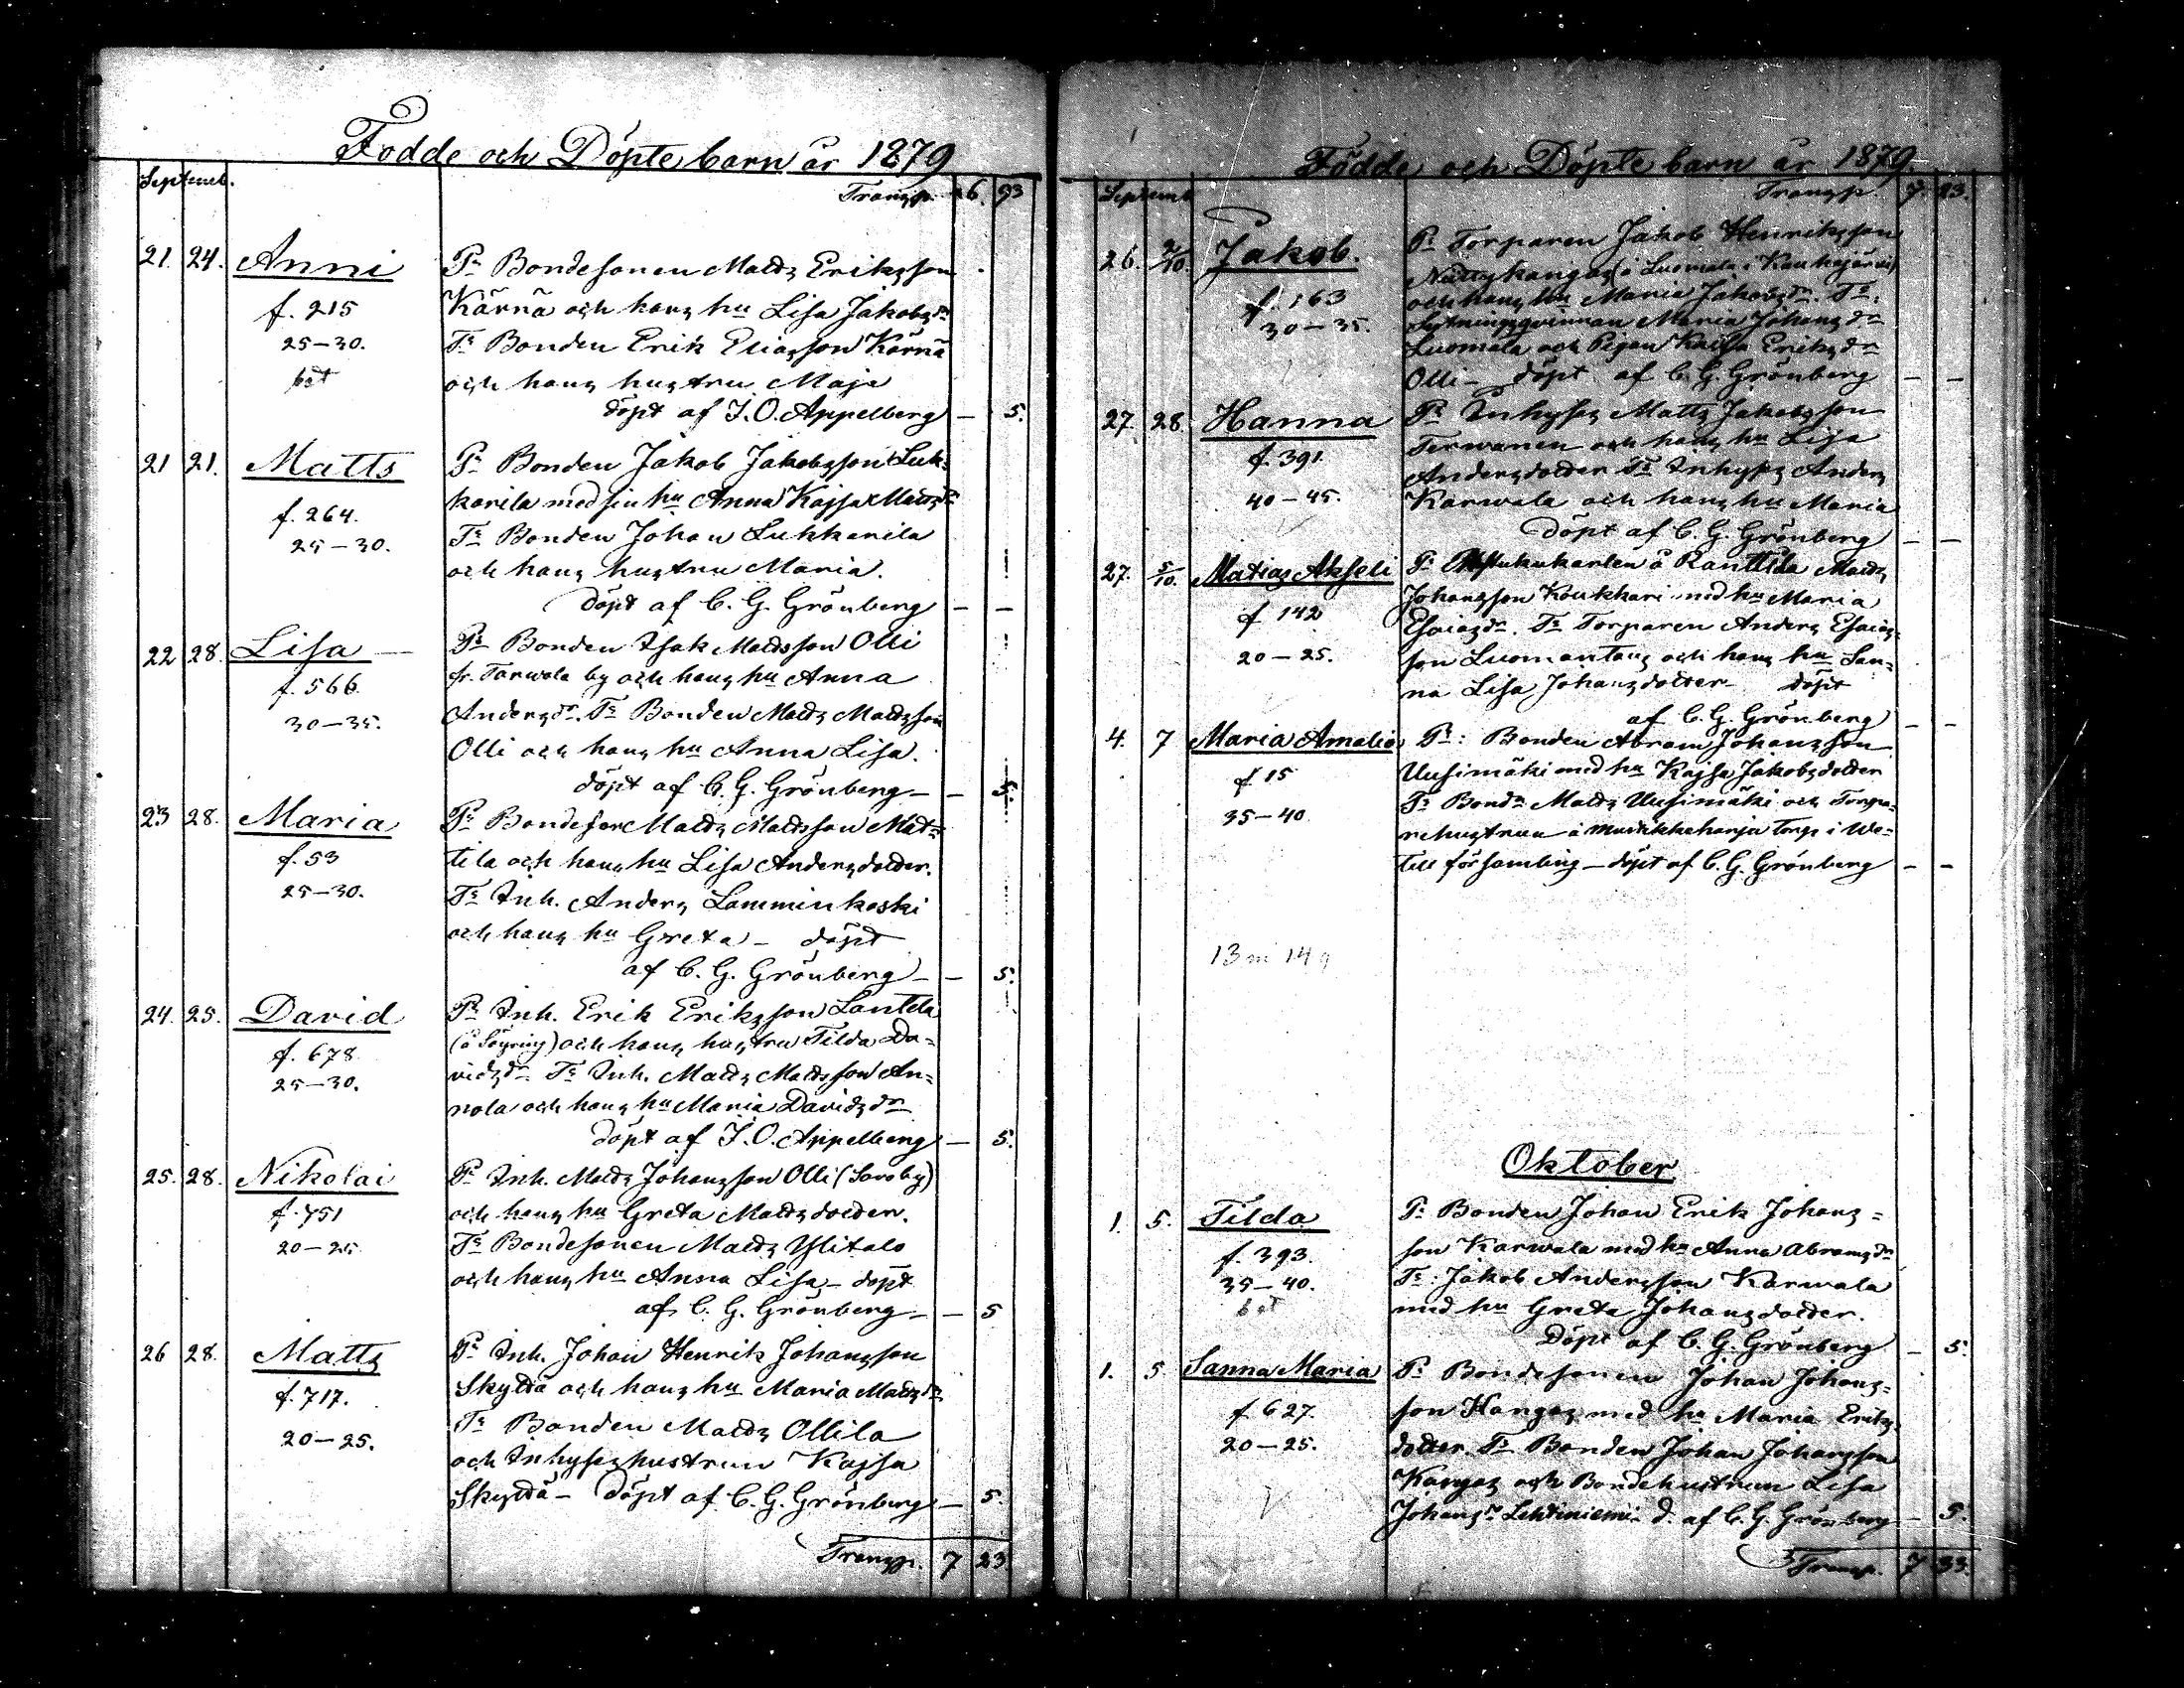 Födde och Döpte barn år 1879
Septemb.
Transp. 6. 93
21. 24. Anni Pr Bondesonen Matts Eriksson
f. 215 Kärnä och hans hu Lisa Jakobsdr
25–30. Tr Bonden Erik Eliasson Kärnä
och hans hustru Maja
döpt af J. O. Appelberg — 5.
21 21. Matts Pr Bonden Jakob Jakobsson Luk-
f. 264. karila med sin hu Anna Kajsa Mattsdr
25–30. Tr Bonden Johan Lukkarila
och hans hustru Maria.
döpt af C. G. Grönberg — —
22 28. Lisa — Pr Bonden Isak Mattsson Olli
f. 566. fr. Tarwola by och hans hu Anna
30–35. Andersdr. Tr Bonden Matts Mattsson
Olli och hans hu Anna Lisa.
döpt af C. G. Grönberg — — 5.
23 28. Maria Pr Bondeson Matts Mattsson Mat-
f. 53 tila och hans hu Lisa Andersdotter.
25–30. Tr Inh. Anders Lamminkoski
och hans hu Greta — döpt
af C. G. Grönberg — — 5.
24. 25. David Pr Inh. Erik Eriksson Lantela
f. 678 (å Söyring) och hans hustru Tilda Da-
25–30. vidsdr. Tr Inh. Matts Mattsson An-
nola och hans hu Maria Davidsdr
döpt af J. O. Appelberg — 5.
25. 28. Nikolai Pr Inh. Matts Johansson Olli (Savoby)
f. 751 och hans hu Greta Mattsdotter.
20–25 Tr Bondesonen Matts Ylitalo
och hans hu Anna Lisa — döpt
af C. G. Grönberg — — 5
26 28. Matts Pr Inh. Johan Henrik Johansson
f. 717. Skyttä och hans hu Maria Mattsdr
20–25. Tr Bonden Matts Ollila
och Inhyseshustrun Kajsa
Skyttä — döpt af C. G. Grönberg — 5.
Transp. 7 23
Födde och Döpte barn år 1879.
Septemb
Transp. 7. 23.
26. 2/10. Jakob. Pr Torparen Jakob Henriksson
(å Luomala i Kauhajärvi)
f. 163 och hans hu Maria Jakobsdr. Tr.
30–35. Sytningsqvinnan Maria Johansdr
Luomala och Pigan Kajsa Eriksdr
Olli — döpt af C. G. Grönberg — —
27. 28. Hanna Pr Inhyses Matts Jakobsson
f. 391. Terwanen och hans hu Lisa
Andersdotter Tr Inhyses Anders
40–45. Karwala och hans hu Maria
döpt af C. G. Grönberg — —
27. 5/10. Matias Akseli Pr å Ranttila Matts
f 142 Johansson Koukkari med hu Maria
Esaiasdr. Tr Torparen Anders Esaias-
20–25. son Luomantaus och hans hu San-
na Lisa Johansdotter — döpt
af C. G. Grönberg — —
4. 7 Maria Amalia Pr: Bonden Abram Johansson
f 15 Uusimäki med hu Kajsa Jakobsdotter
35–40. Tr Bondn Matts Uusimäki och Torpa-
rehustrun å torp i We-
till församling — döpt af C. G. Grönberg — —
13 m 14 q
Oktober
1. 5. Tilda Pr Bonden Johan Erik Johans-
f. 393. son Karwala med hu Anna Abramsdr
35–40. Tr: Jakob Andersson Karwala
med hu Greta Johansdotter.
Döpt af C. G. Grönberg — 5.
1. 5. Sanna Maria Pr Bondesonen Johan Johans-
f 627. son Kangas med hu Maria Eriks-
20–25. dotter. Tr Bonden Johan Johansson
Kangas och Bondehustrun Lisa
Johansdr Lehtiniemi — d. af C. G. Grönberg — 5.
Transp. 7 33.